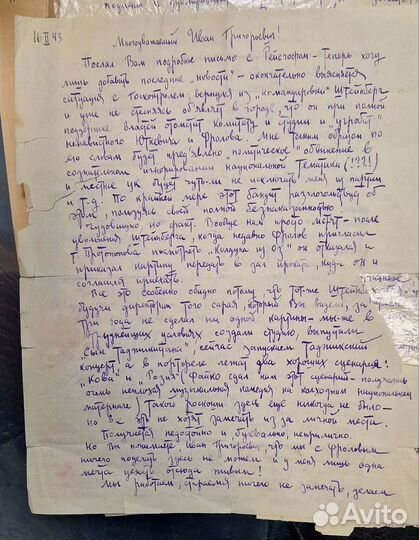 16 II 43
Многоуважаемый Иван Григорьевич!
Послал Вам подробное письмо с Рейзгофом - Теперь хочу
лишь добавить последние "новости" - окончательно выяснятся
ситуация с Госконтролем; вернулся из "командировки" Штейнберг
и уже не стесняясь объявляет в городе, что он при полной
поддержке властей отомстит комитету и студии и "угробит"
ненавистного Юткевича и Фролова. Мне таким образом по
его словам будет предъявлено "политическое" обвинение в
сознательном игнорировании национальной тематики (!?!?)
и местное ЦК будет чуть-ли не исключать меня из партии
и т.д. По крайней мере этот бандит разглагольствует об
этом, пользуясь своей полной безнаказанностью.
Чудовищно, но факт. Вообще нам просто мстят - после
увольнения Штейнберга, когда недавно Фролов пригласил
т. Протопопова посмотреть "Колдуна из Оз" он отказался и
приказал картину передать в зал проката, куда он и
согласился приехать.
Все это особенно обидно потому что тот-же Штейнберг
будучи директором того сарая, который Вы видели, за
три года не сделал ни одной картины - мы-же в
труднейших условиях создали студию, выпустили
"Сын Таджикистана", сейчас запускаем Таджикский
концерт, а в портфеле лежат два хороших сценария:
"Кова" и "Розия" (Файко сдал нам этот сценарий - получилась
очень неплохая музыкальная комедия на колхозном национальном
материале) Такого роскоши здесь еще никогда не было -
но все это не хотят замечать из за личной мести.
Получается недостойно и буквально, неприлично.
Но Вы понимаете Иван Григорьевич что мы с Фроловым
ничего поделать здесь не можем и у меня лишь одна
мечта уехать отсюда живым!
Мы работаем, стараемся ничего не замечать, делаем
Avito